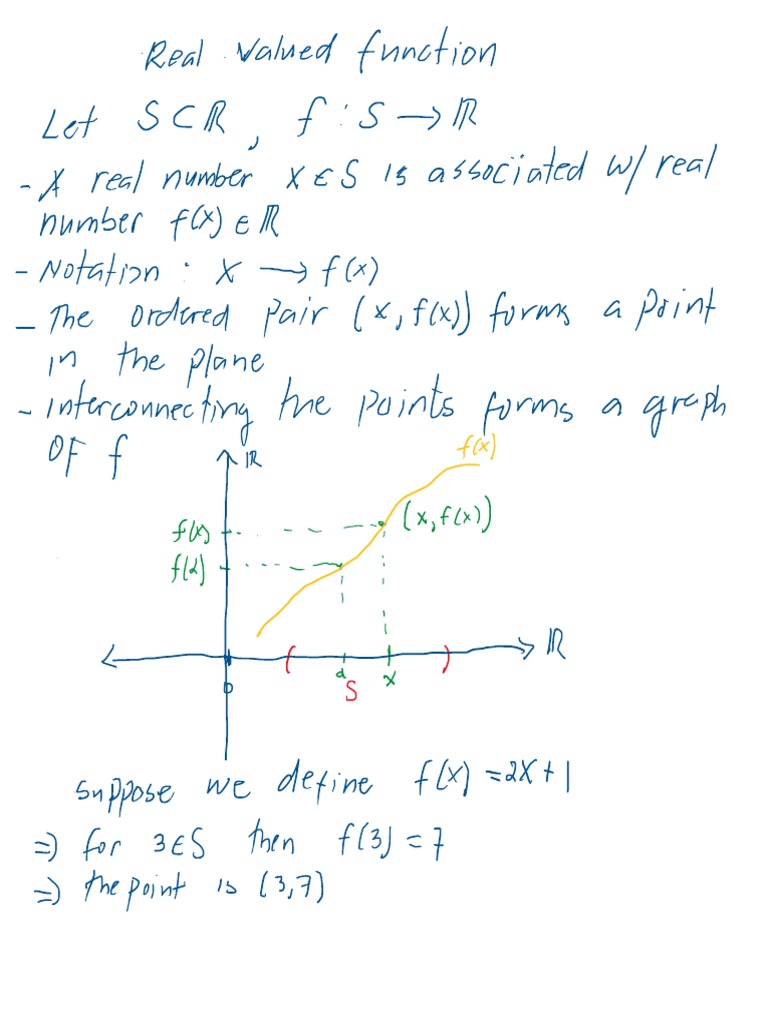 Real Valued function
Let S⊂ℝ, f : S → ℝ
- A real number x∈S is associated w/ real
number f(x) ∈ ℝ
- Notation : x → f(x)
- The ordered pair (x, f(x)) forms a point
in the plane
- Interconnecting the points forms a graph
OF f
ℝ
f(x)
f(x)
(x, f(x))
f(2)
ℝ
0
S
x
Suppose we define f(x) = 2x + 1
⇒ for 3∈S then f(3) = 7
⇒ the point is (3,7)